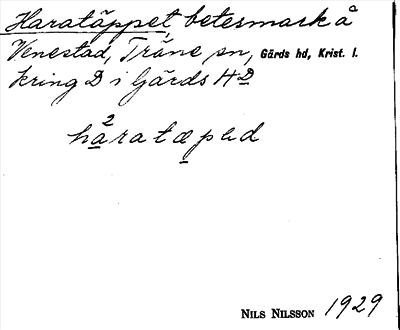 Haratäppet, betesmark å
Venestad, Träne sn, Gärds hd, Krist. l.
kring D i Gärds HD
2
haratæpəd
NILS NILSSON 1929